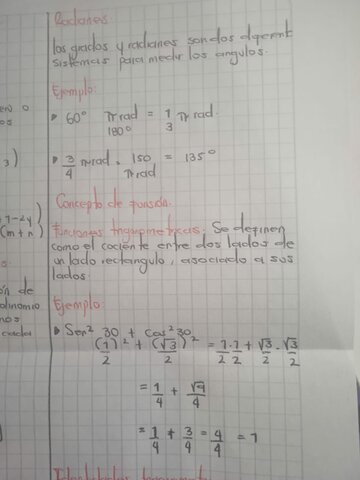 Radianes
los grados y radianes son dos diferent
sistemas para medir los angulos.
Ejemplo:
60° π rad = 1 π rad
180° 3
3 π rad . 150 = 135°
4 π rad
Concepto de
funciones trigonometricas: Se definen
como el cociente entre dos lados de
un lado rectangulo, asociado a sus
lados.
Ejemplo:
Sen² 30 + Cos² 30
(1)² + (√3)² = 1·1 + √3 · √3
2 2 2 2 2 2
= 1 + √9
4 4
= 1 + 3 = 4 = 1
4 4 4
3)
+1-2y)
(m+n)
ón de
olinomio
nos
icada